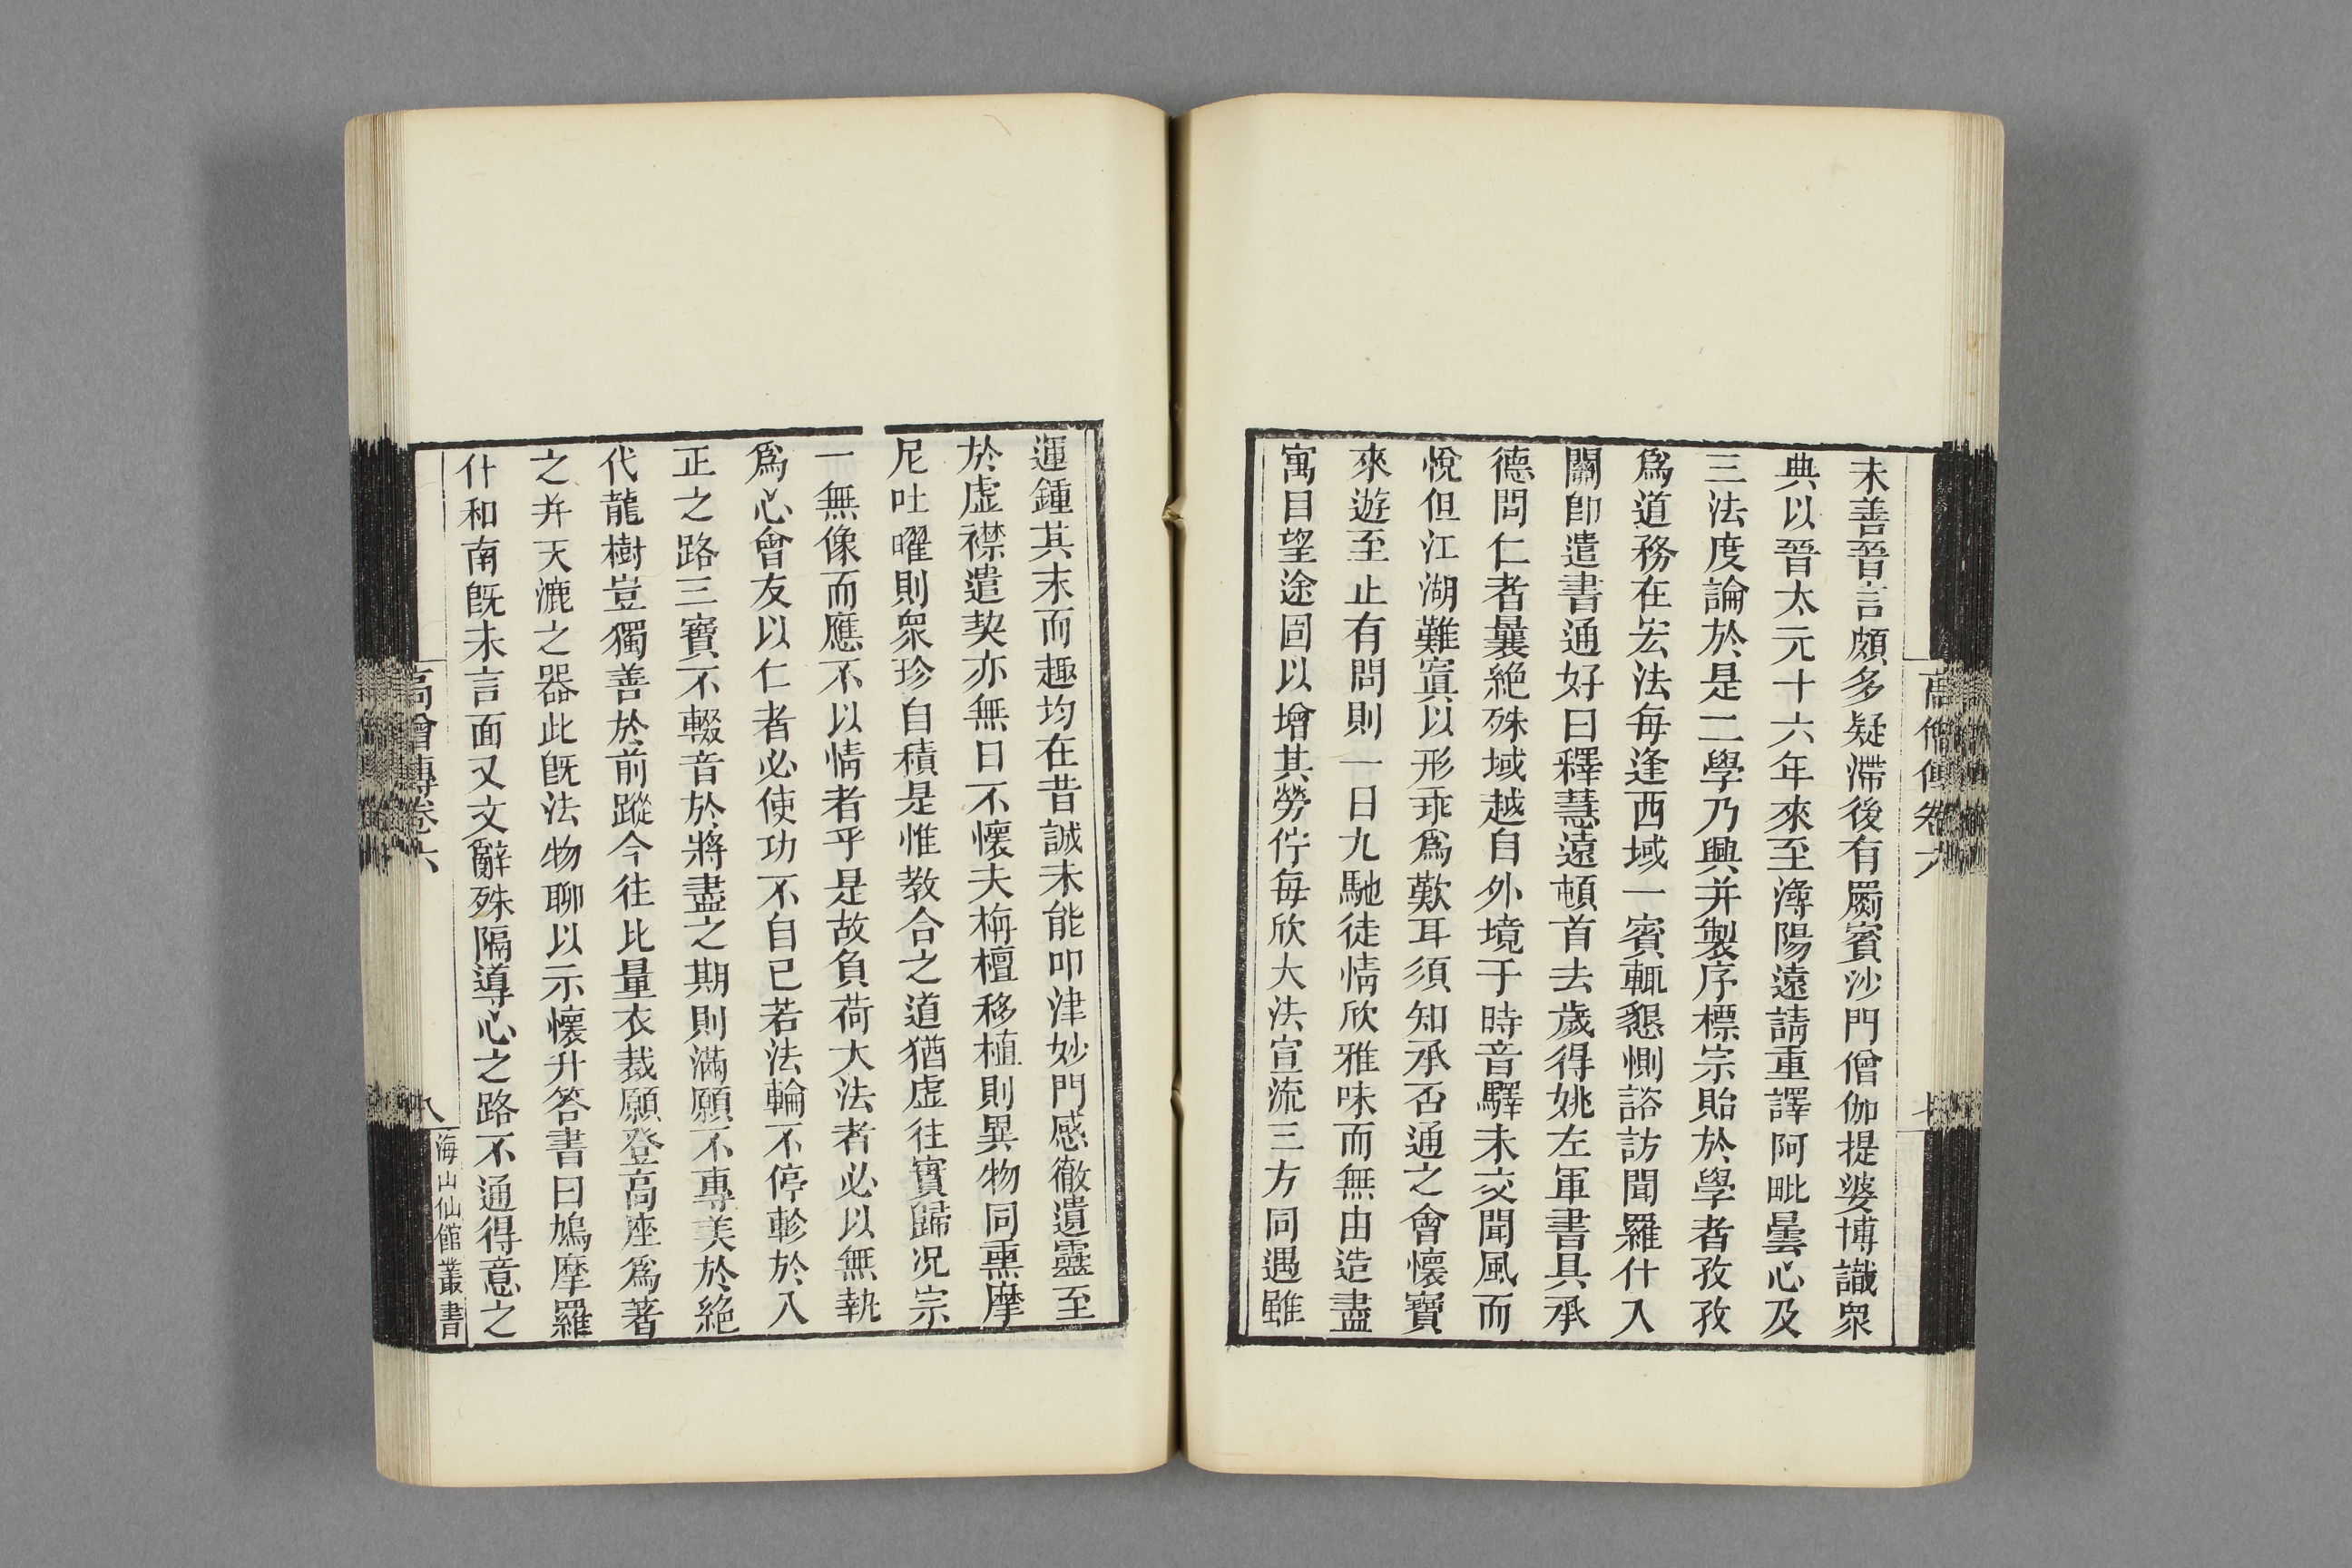 未善晉言頗多疑滯後有罽賓沙門僧伽提婆博識衆
典以晉太元十六年來至潯陽遠請重譯阿毗曇心及
三法度論於是二學乃興并製序標宗貽於學者孜孜
爲道務在宏法每逢西域一賓輒懇惻諮訪聞羅什入
關卽遣書通好曰釋慧遠頓首去歲得姚左軍書具承
德問仁者曩絶殊域越自外境于時音驛未交聞風而
悅但江湖難寘以形乖爲歎耳須知承否通之會懷寶
來遊至止有問則一日九馳徒情欣雅味而無由造盡
寓目望途固以增其勞佇每欣大法宣流三方同遇雖
高僧傳卷六
七
運鍾其末而趣均在昔誠未能叩津妙門感徹遺靈至
於虛襟遣契亦無日不懷夫栴檀移植則異物同熏摩
尼吐曜則衆珍自積是惟教合之道猶虛往實歸况宗
一無像而應不以情者乎是故負荷大法者必以無執
爲心會友以仁者必使功不自已若法輪不停軫於入
正之路三寶不輟音於將盡之期則滿願不專美於絶
代龍樹豈獨善於前蹤今往比量衣裁願登高座爲著
之并天漉之器此旣法物聊以示懷什答書曰鳩摩羅
什和南旣未言面又文辭殊隔導心之路不通得意之
高僧傳卷六
八
海山仙館叢書